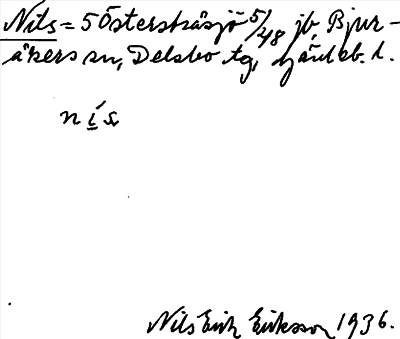 Nils = 5 Österstråsjö 5/48 jb, Bjur-
åkers sn, Delsbo tg, Gävleb. l.
nís
Nils Erik Eriksson 1936.